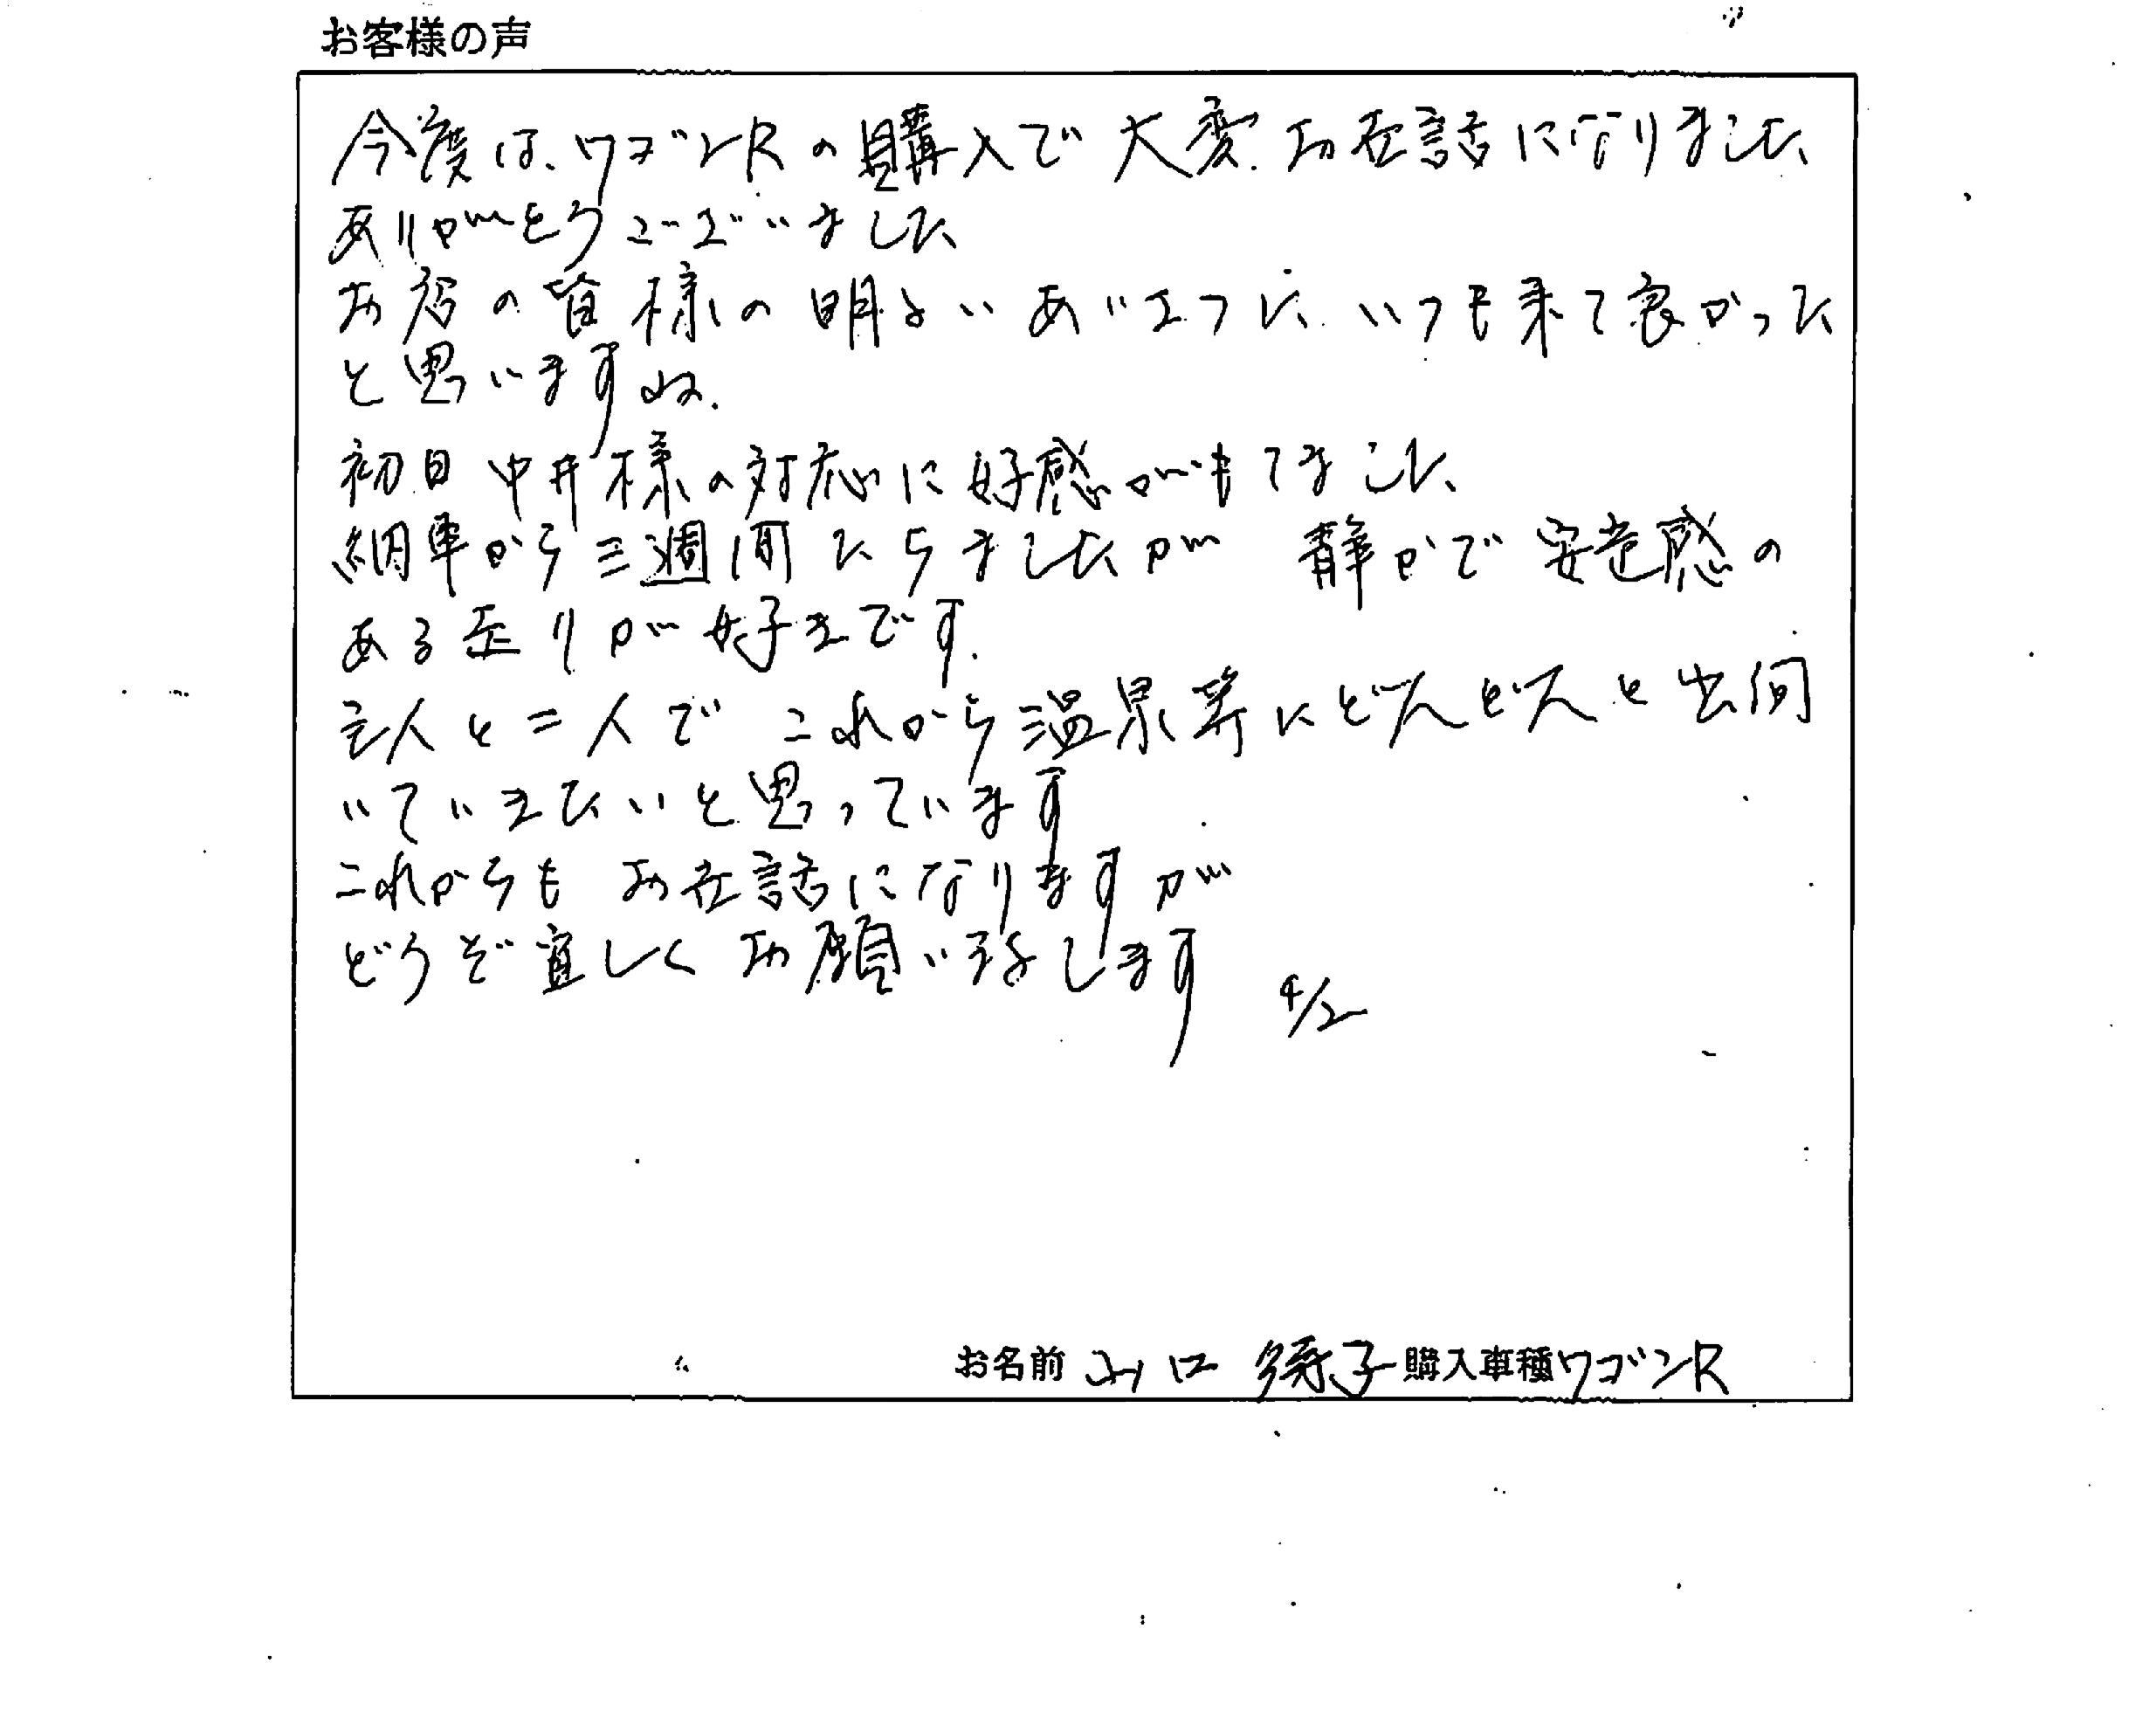 お客様の声
今度は、ワゴンRの購入で大変お世話になりました
ありがとうございました
お店の皆様の明るいあいさつに いつも来て良かった
と思いますね.
初日 中井様の対応に好感がもてました
納車から三週間たちましたが 静かで安定感の
ある走りが好きです.
主人と二人で これから温泉等にどんどんと出向
いていきたいと思っています
これからも お世話になりますが
どうぞ宜しくお願い致します 4/2
お名前 山口 子 購入車種 ワゴンR